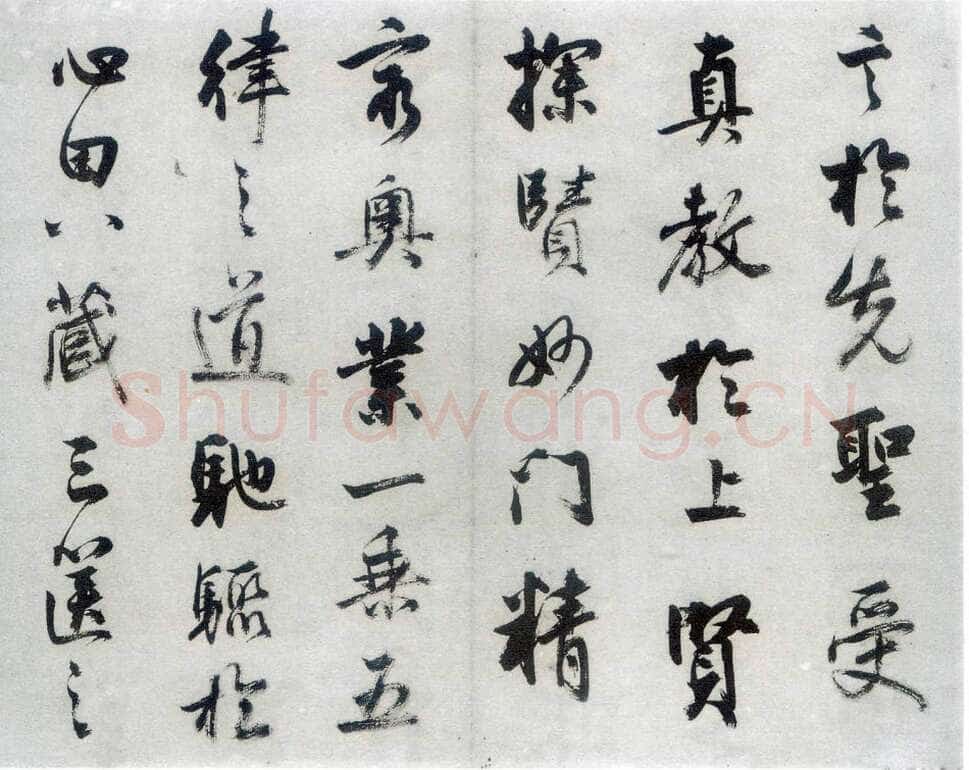 言於先聖受
真教於上賢
探賾妙門精
窮奧業一乘五
律之道馳驟於
心田八藏三篋之
Shufawang.CN